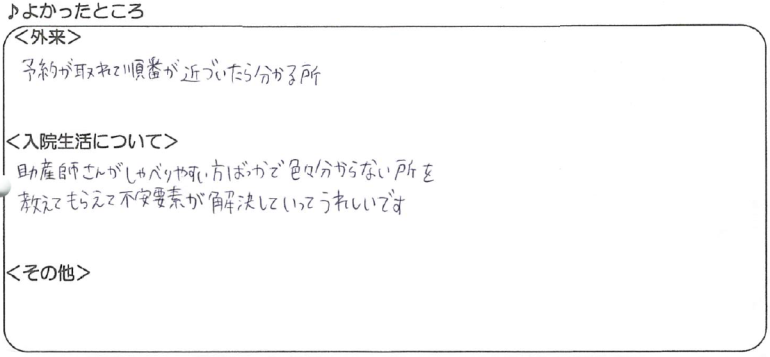 ♪よかったところ
＜外来＞
予約が取れて順番が近づいたら分かる所
＜入院生活について＞
助産師さんがしゃべりやすい方ばっかで色々分からない所を
教えてもらえて不安要素が解決していってうれしいです
＜その他＞